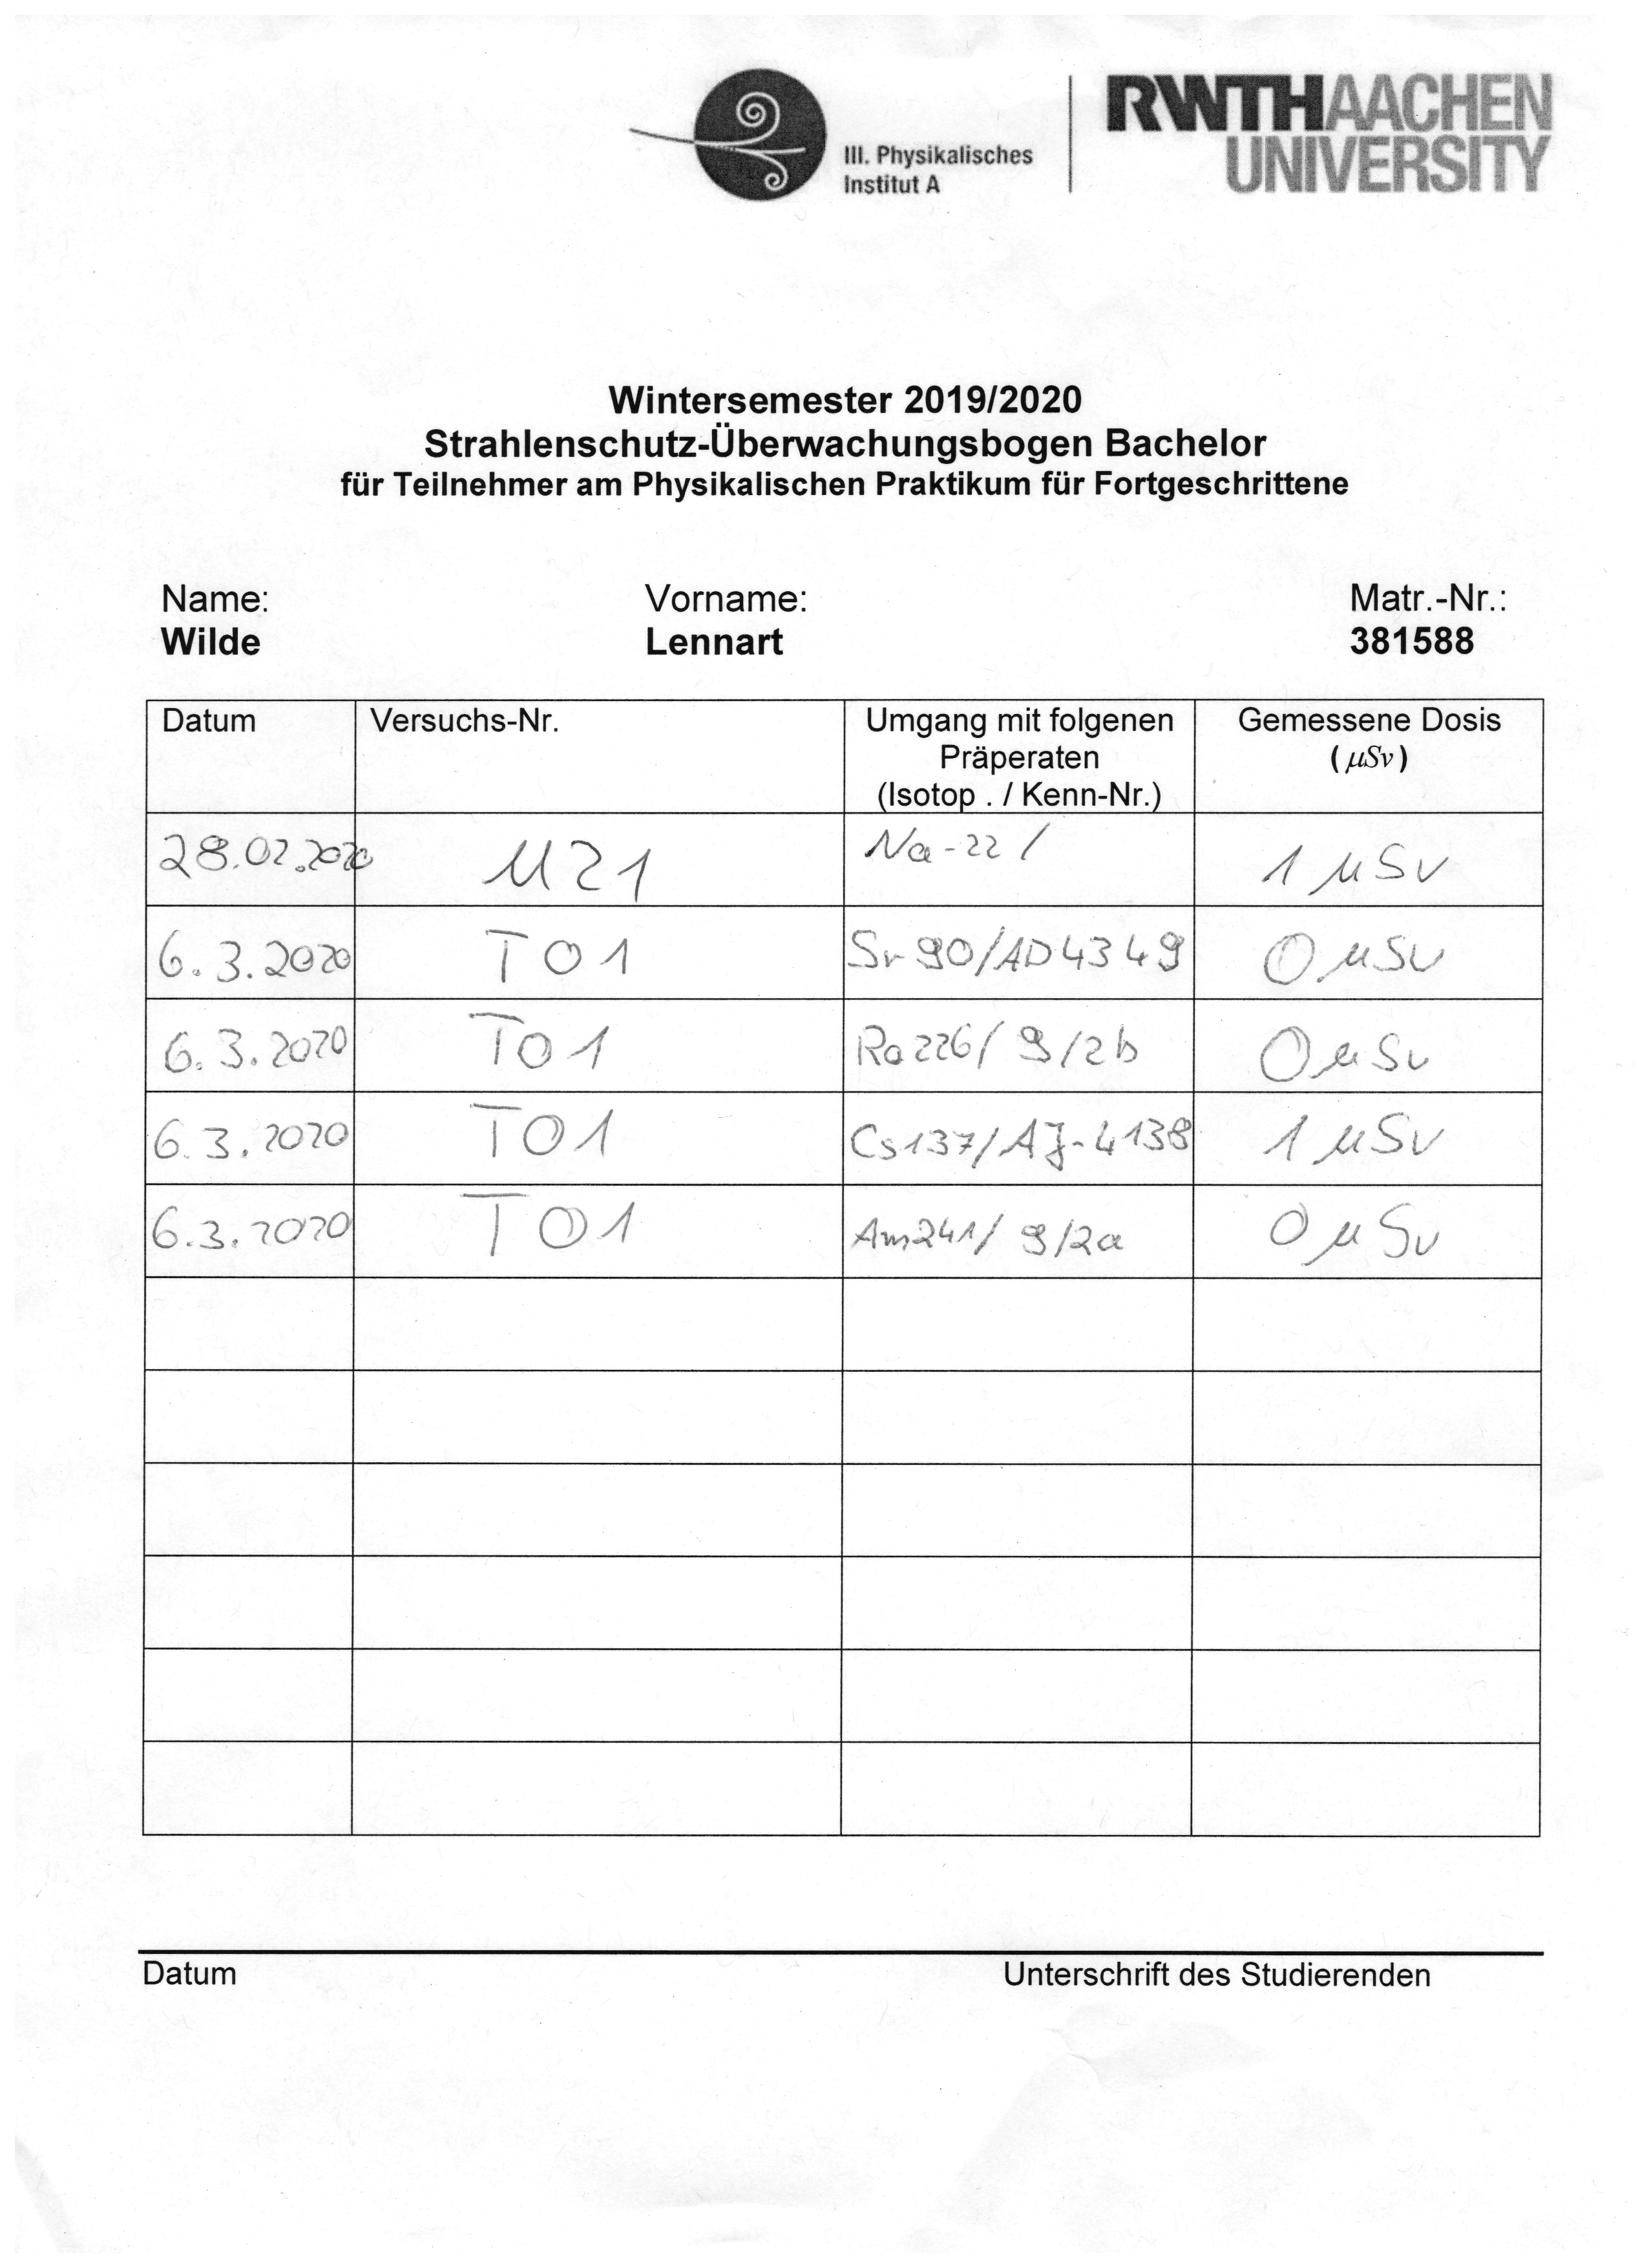 III. Physikalisches
Institut A
RWTHAACHEN
UNIVERSITY
Wintersemester 2019/2020
Strahlenschutz-Überwachungsbogen Bachelor
für Teilnehmer am Physikalischen Praktikum für Fortgeschrittene
Name: Vorname: Matr.-Nr.:
Wilde Lennart 381588
Datum Versuchs-Nr. Umgang mit folgenen Gemessene Dosis
Präperaten (µSv)
(Isotop . / Kenn-Nr.)
28.02.2020 M21 Na-22 / 1 µSv
6.3.2020 T01 Sr90/AD4349 0 µSv
6.3.2020 T01 Ra226/9/2b 0 µSv
6.3.2020 T01 Cs137/AJ-4138 1 µSv
6.3.2020 T01 Am241/9/2a 0 µSv
Datum Unterschrift des Studierenden